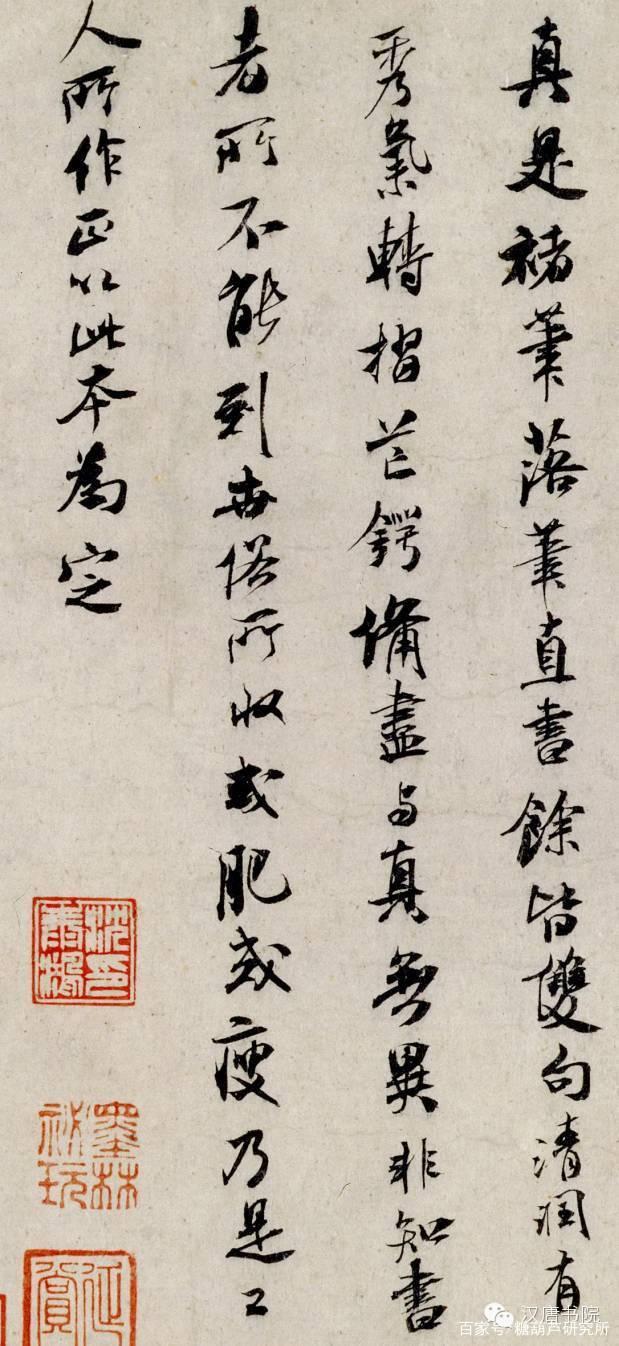 真是褚筆落筆直書餘皆雙句清潤有
秀氣轉摺芒鍔備盡与真無異非知書
者所不能到世俗所收或肥或瘦乃是工
人所作正以此本為定
墨林
秘玩
汉唐书院
百家号/糖葫芦研究所